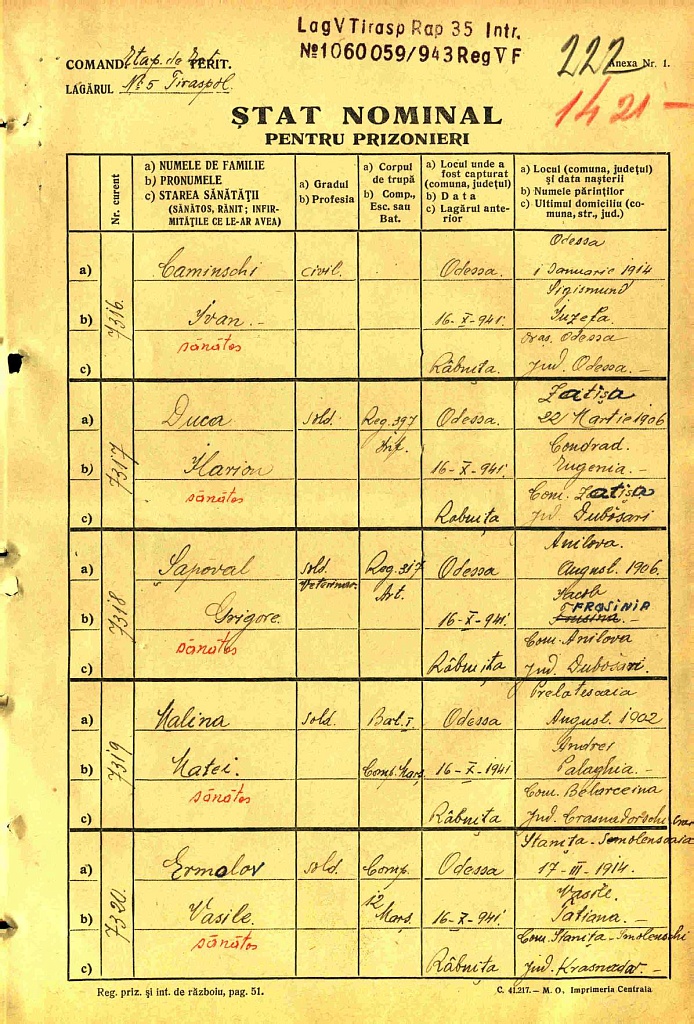 Lag V Tirasp Rap 35 Intr.
№1060059/943 Reg V F
COMAND. Etap. de Est TERIT.
222 Anexa Nr. 1.
LAGĂRUL № 5 Tiraspol.
1421 —
ȘTAT NOMINAL
PENTRU PRIZONIERI
Nr. curent
a) NUMELE DE FAMILIE
b) PRONUMELE
c) STAREA SĂNĂTĂȚII
(SĂNĂTOS, RĂNIT; INFIR-
MITĂȚILE CE LE-AR AVEA)
a) Gradul
b) Profesia
a) Corpul
de trupă
b) Comp.,
Esc. sau
Bat.
a) Locul unde a
fost capturat
(comuna, județul)
b) Data
c) Lagărul ante-
rior
a) Locul (comuna, județul)
și data nașterii
b) Numele părinților
c) Ultimul domiciliu (co-
muna, str., jud.)
7316.
Odessa
a) Caminschi civil. Odessa. 1 Ianuarie 1914
Sigismund
b) Ivan.- 16-X-941. Iuzefa.
sănătos
oraș. Odessa
c) Râbnița. jud. Odessa.-
7317
Zatișa
a) Duca sold. Reg. 397 Odessa. 22 Martie 1906
Inf. Condrad.
b) Ilarion 16-X-941. Eugenia.-
sănătos
Com. Zatișa
c) Rabnița jud Dubosari
7318
Anilova.
a) Șapoval sold. Reg. 317 Odessa August. 1906.
Veterinar. Art.
Iacob
b) Grigore. 16-X-941. EFROSINIA
sănătos
Com. Anilova
c) Râbnița jud. Dubosari.
7319
a) Malina sold. Bat. I. Odessa August. 1902
Andrei
b) Matei. Comp. Marș. 16-X-1941 Palaghia.-
sănătos
c) Râbnița jud. Crasnodorschi
7320.
Stanița-Smolenscaia
a) Ermolov sold. Comp. Odessa 17-III-1914.
12 Vasile.
b) Vasile. Marș. 16-X-941. Tatiana.-
sănătos
Com. Stanița-Smolenschi
c) Râbnița jud. Krasnadar.-
Reg. priz. și int. de războiu, pag. 51.
C. 41.217.— M. O., Imprimeria Centrala